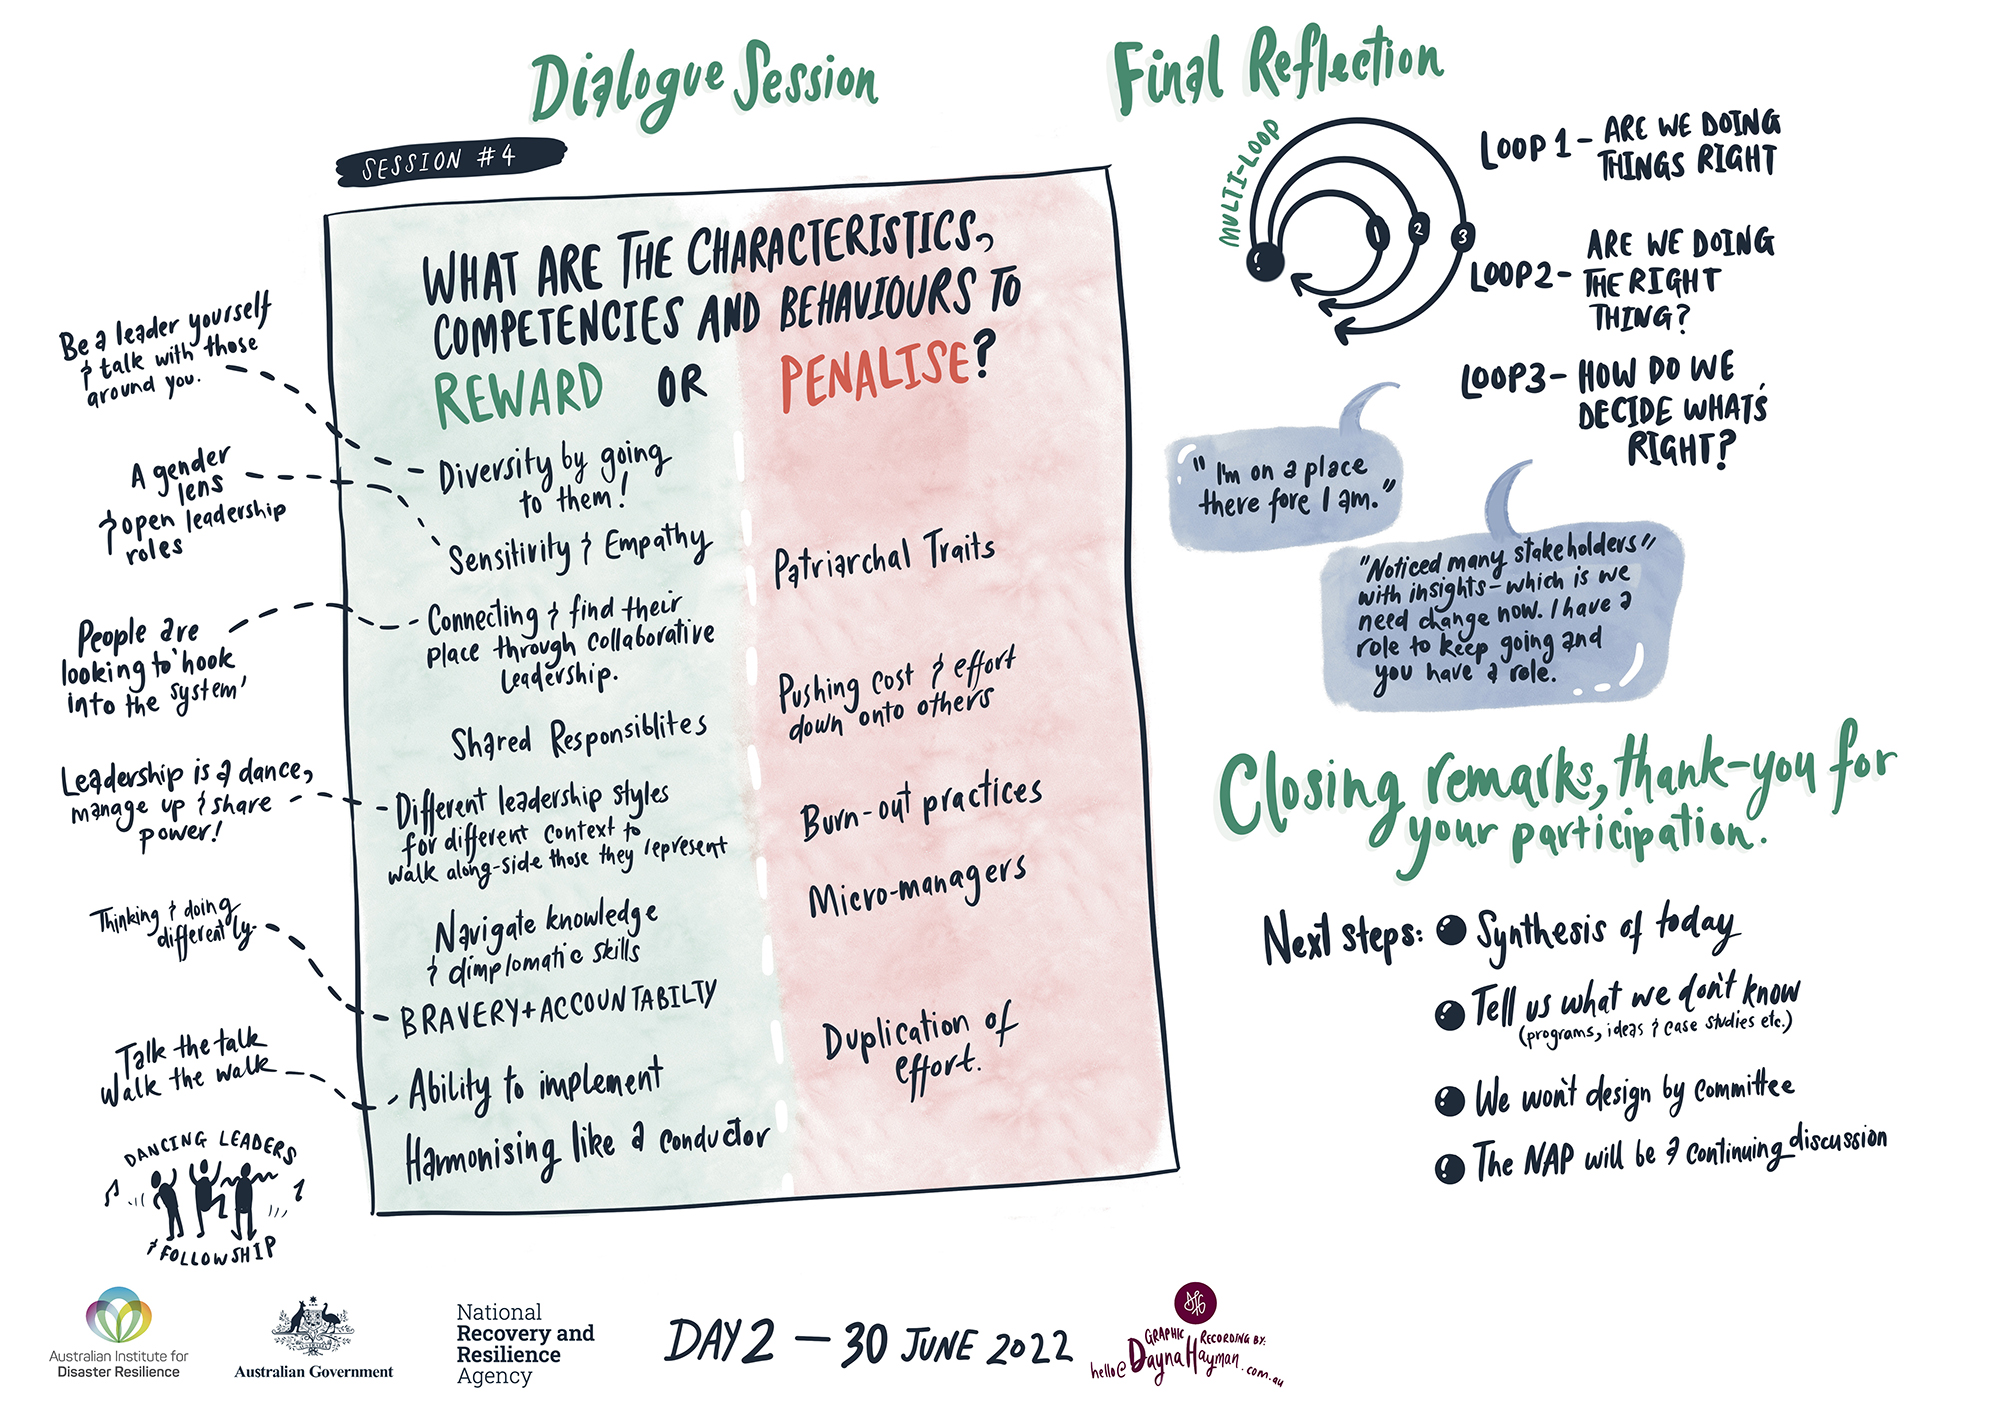 Dialogue Session
SESSION #4
WHAT ARE THE CHARACTERISTICS,
COMPETENCIES AND BEHAVIOURS TO
REWARD OR PENALISE?
Be a leader yourself
& talk with those
around you.
A gender
lens
& open leadership
roles
People are
looking to 'hook
into the system'
Leadership is a dance,
manage up & share
power!
Thinking & doing
differently.
Talk the talk
Walk the walk
DANCING LEADERS
& FOLLOWSHIP
Diversity by going
to them!
Sensitivity & Empathy
Connecting & find their
place through collaborative
leadership.
Shared Responsiblites
Different leadership styles
for different context to
walk along-side those they represent
Navigate knowledge
& dimplomatic skills
BRAVERY + ACCOUNTABILTY
Ability to implement
Harmonising like a conductor
Patriarchal Traits
Pushing cost & effort
down onto others
Burn-out practices
Micro-managers
Duplication of
effort.
Final Reflection
MULTI-LOOP
1
2
3
LOOP 1 - ARE WE DOING
THINGS RIGHT
LOOP 2 - ARE WE DOING
THE RIGHT
THING?
LOOP 3 - HOW DO WE
DECIDE WHAT'S
RIGHT?
"I'm on a place
there fore I am."
"Noticed many stakeholders"
with insights - which is we
need change now. I have a
role to keep going and
you have a role.
Closing remarks, thank-you for
your participation.
Next steps: Synthesis of today
Tell us what we don't know
(programs, ideas & case studies etc.)
We won't design by committee
The NAP will be a continuing discussion
Australian Institute for
Disaster Resilience
Australian Government
National
Recovery and
Resilience
Agency
DAY 2 - 30 JUNE 2022
GRAPHIC RECORDING BY:
hello@DaynaHayman.com.au